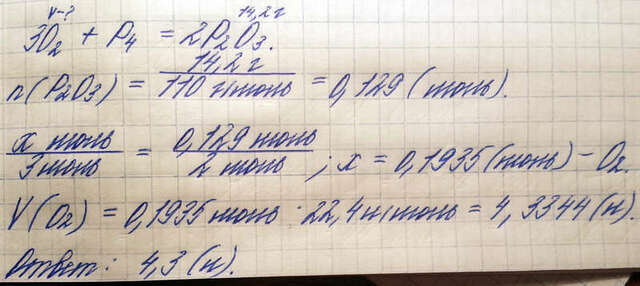 V-? 14,2 г
3O₂ + P₄ = 2P₂O₃.
n(P₂O₃) = 14,2 г / 110 г/моль = 0,129 (моль).
x моль / 3 моль = 0,129 моль / 2 моль ; x = 0,1935 (моль) - O₂.
V(O₂) = 0,1935 моль · 22,4 л/моль = 4,3344 (л).
Ответ: 4,3 (л).